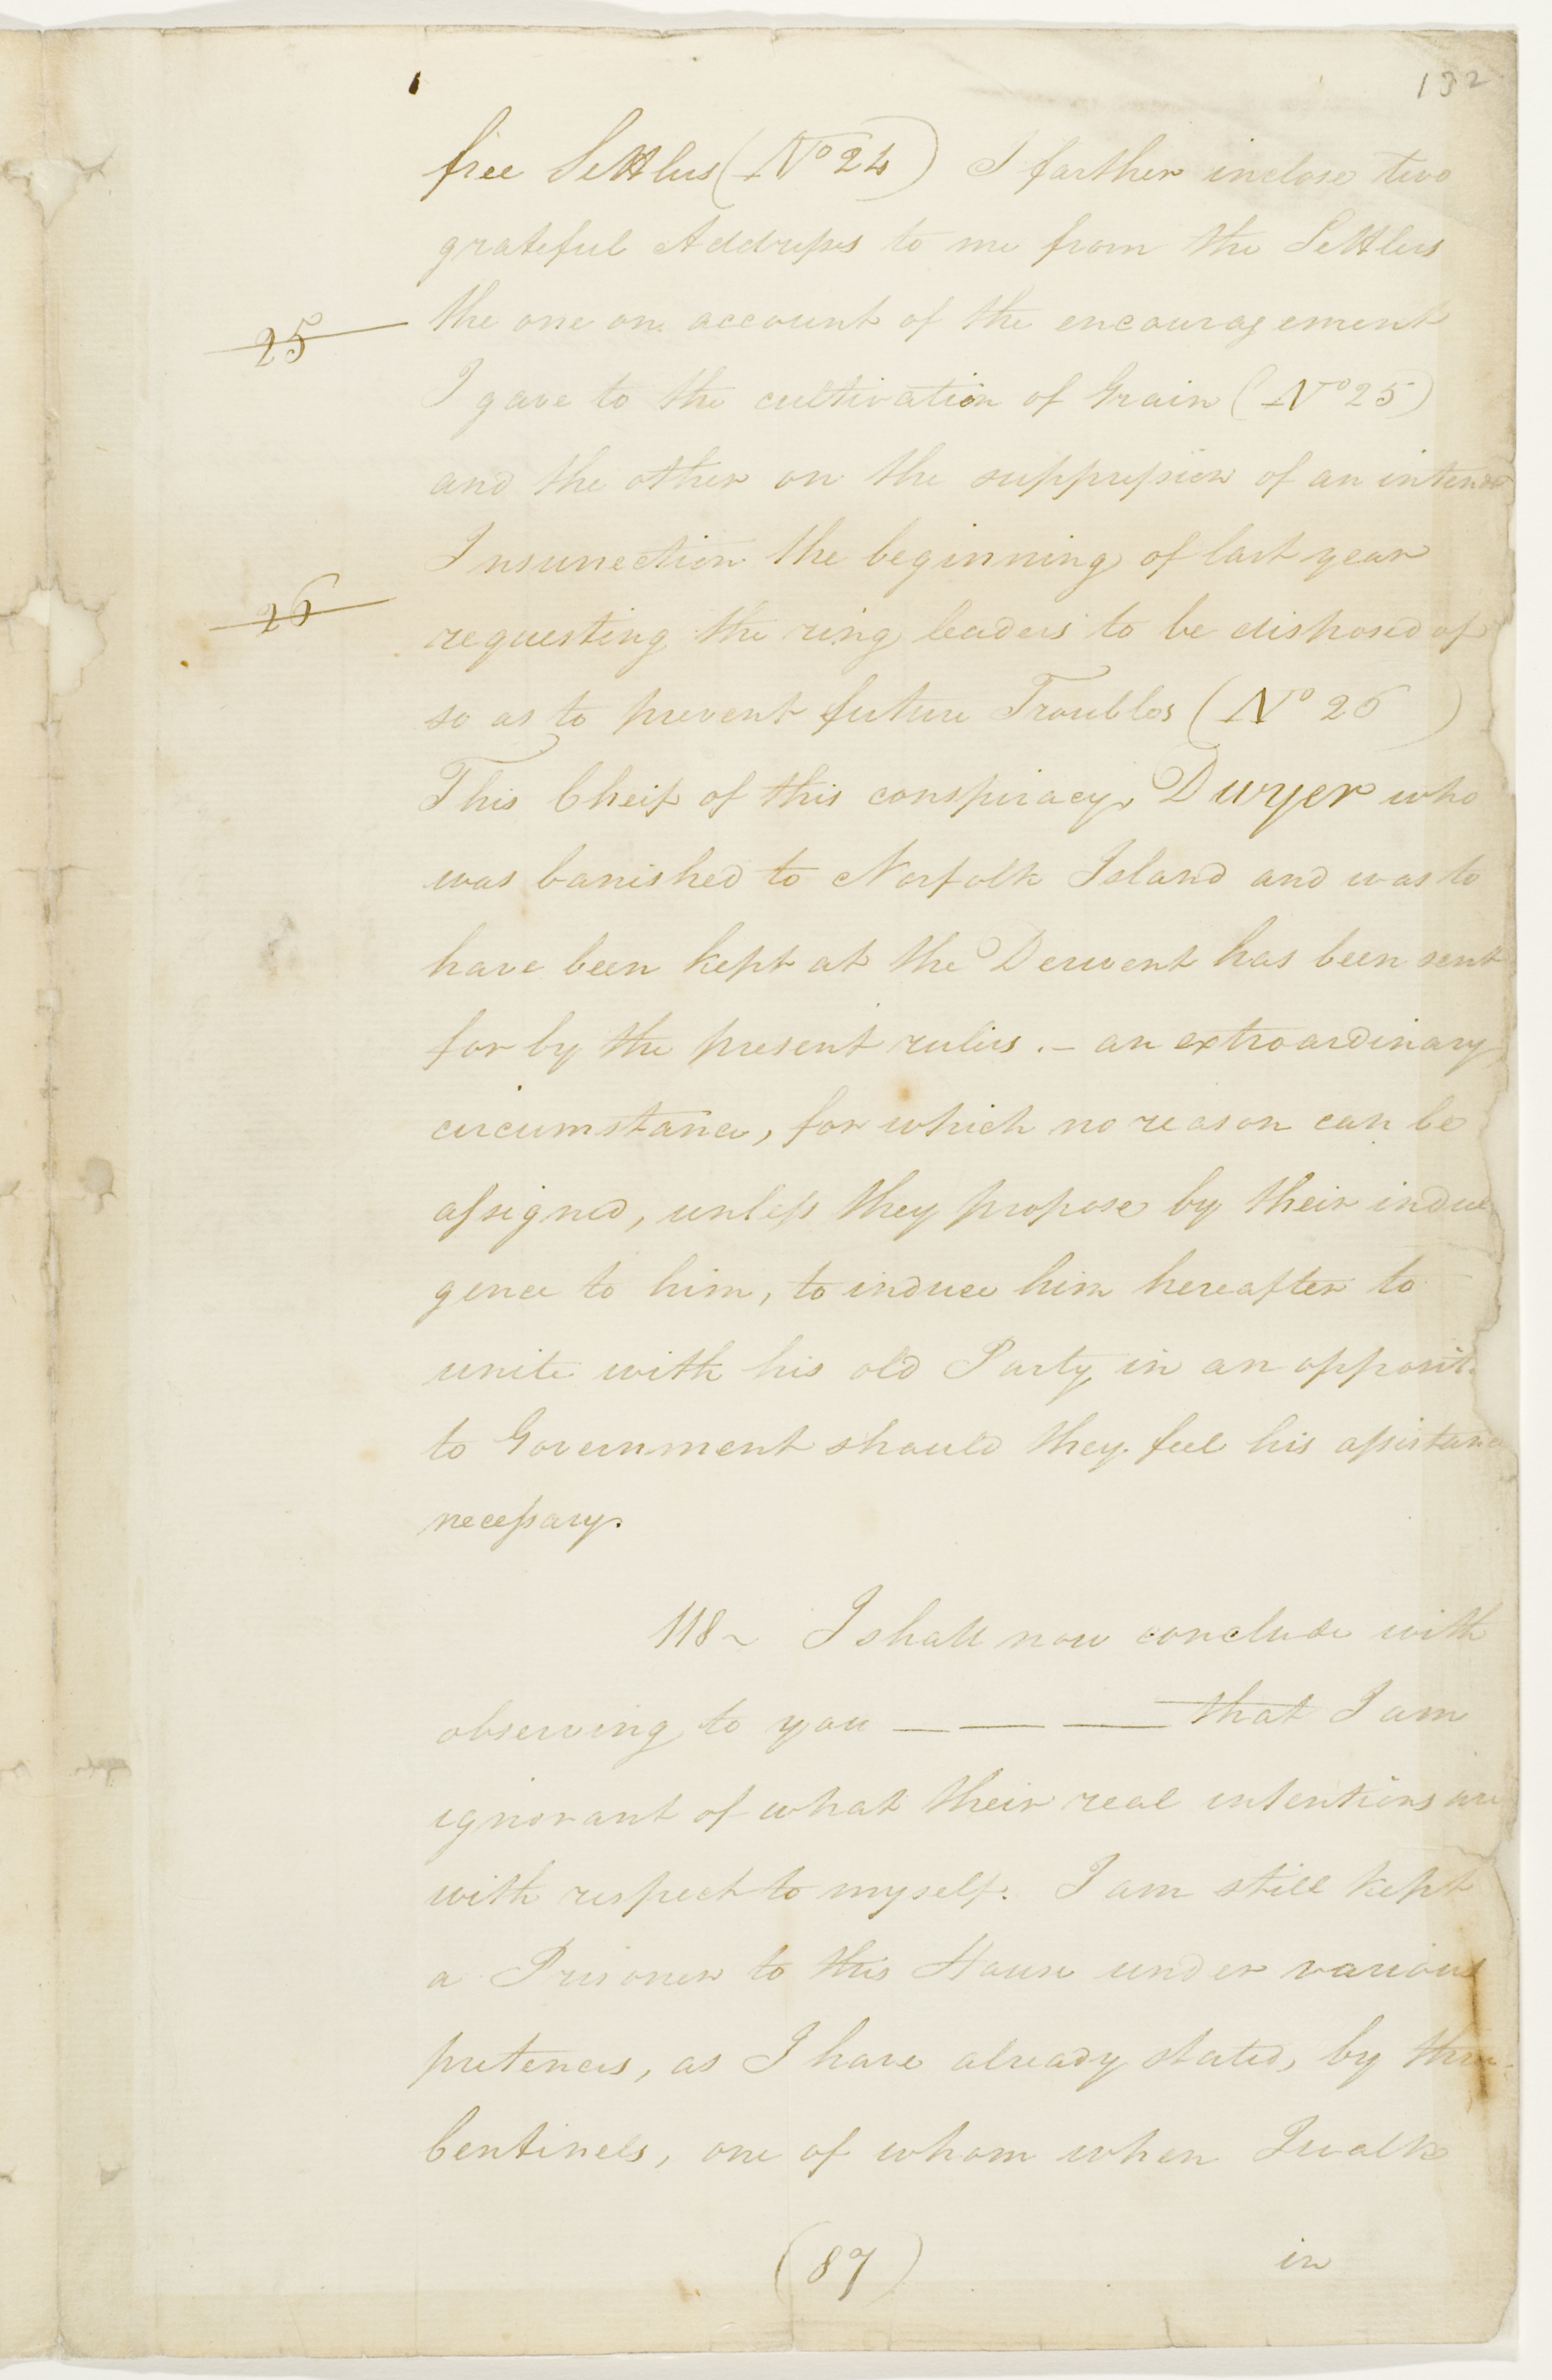 132
free Settlers (No 24) I farther inclose two
grateful Addresses to me from the Settlers
the one on account of the encouragement
25
I gave to the cultivation of Grain (No 25)
and the other on the suppression of an intend
Insurrection the beginning of last year
26
requesting the ring leaders to be disposed of
so as to prevent future Troubles (No 26)
This Cheif of this conspiracy, Dwyer who
was banished to Norfolk Island and was to
have been kept at the Derwent has been sent
for by the present rulers. — an extroardinary
circumstance, for which no reason can be
assigned, unless they propose by their indul
gence to him, to induce him hereafter to
unite with his old Party in an opposit
to Government should they feel his assistance
necessary.
118 ~ I shall now conclude with
observing to you — — — that I am
ignorant of what their real intentions are
with respect to myself. I am still kept
a Prisoner to this House under various
pretences, as I have already stated, by three
Centinels, one of whom when I walk
(87) in